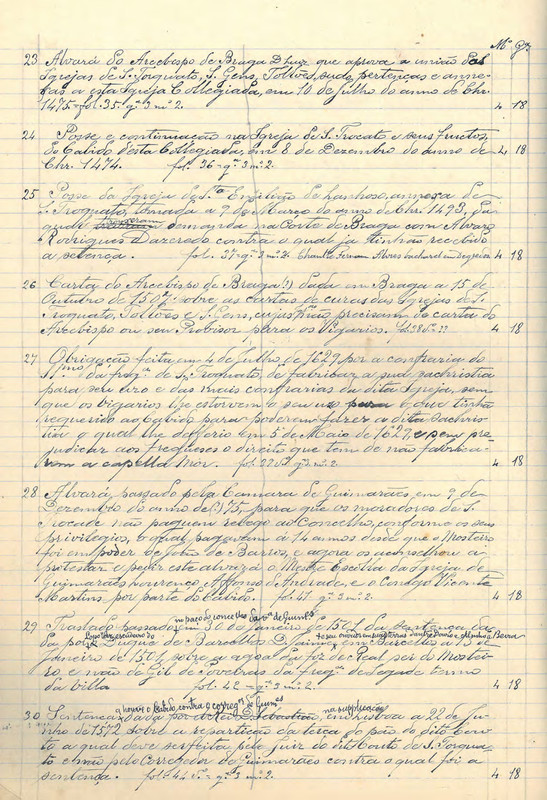 Mº Gª
23 Alvará do Arcebispo de Braga D. Luiz que aprova a união das
Igrejas de S. Torquato, S. Gens, Toltões, suas pertenças e anne-
xas a esta Igreja Collegiada, em 10 de Julho do anno de Chr.
1475. fol. 35. gª 3 mº 2. 4 18
24 Posse e continuação na Igreja de S. Trocato e seus fructos
do Cabido desta Collegiada, em 8 de Dezembro do anno de 4 18
Chr. 1474. fol. 36 - gª 3 mº 2.
25 Posse da Igreja de S.ta de annexa de
S. Troquato, tomada a 9 de Março do anno de Chr. 1493, da
qual trouxeram demanda na Corte de Braga com Alvaro
Rodrigues d'Azeredo contra o qual ja tinhão recebido
a setença. fol. 37 gª 3 mº 2. Fernam Alvres 4 18
26 Carta do Arcebispo de Braga (?) dada em Braga a 15 de
Outubro de 1507 sobre as cartas de curas das Igrejas de S.
Troquato, Toltões e S. Gens, cujas não precisam de carta do
Arcebispo ou seu Provisor para os Vigarios. 4 18
27 Obrigação feita em 4 de Julho de 1629 por a confraria do
SSmo da fregª de S. Troquato, de fabricar a sua sachristia
para seu uso e das mais confrarias da dita Igreja, sem
que os vigarios lhe estorvem o seu uso para o que tinha
requerido ao Cabido para poderem fazer a dita Sachris-
tia o qual lhe deferio em 5 de Maio de 1629, e sem pre-
judicar aos freguêses o direito que tem de não fabrica-
rem a capella Mor. gª 3 mº 2. 4 18
28 Alvará, passado pela Camara de Guimarães, em 9 de
Dezembro do anno de (?)75, para que os moradores de S.
Trocade não paguem relego ao Conselho, conforme os seus
privilegios, o qual pagavam á 14 annos desde que o Mosteiro
foi em poder de João de Barros, e agora os
protestar e pedir este alvará o Mestre Escolla da Igreja de
Guimarães Lourenço Affonso de Andrade, e o Conego Vicente
Martins por parte do Cabido. fol. 41 gª 3 mº 2. 4 18
no paço do concelho da vª de Guimes
29 Traslado passado em 30 de Janeiro de 1501 da Sentença da-
da por o Duque de Barcellos D. Jaime em Barcellos a 15 de
Janeiro de 1501 sobre a agoa da foz de Real ser do Mostei-
ro e não de Gil de da fregª de Segade termo
da villa fol. 42 - gª 3 mº 2. 4 18
a houve o Cabido, contra o correg.or de Guimes na supplicação
30 Sentença dada por elRei D. Sebastião, em Lisboa a 22 de Ju-
nho de 1572 sobre a repartição da terça do pão do dito Cou-
to a qual deve ser feita pelo juiz do dito Couto de S. Torqua-
to e não pelo Corregedor de Guimarães contra o qual foi a
sentença. fol. 44 gª 3 mº 2. 4 18